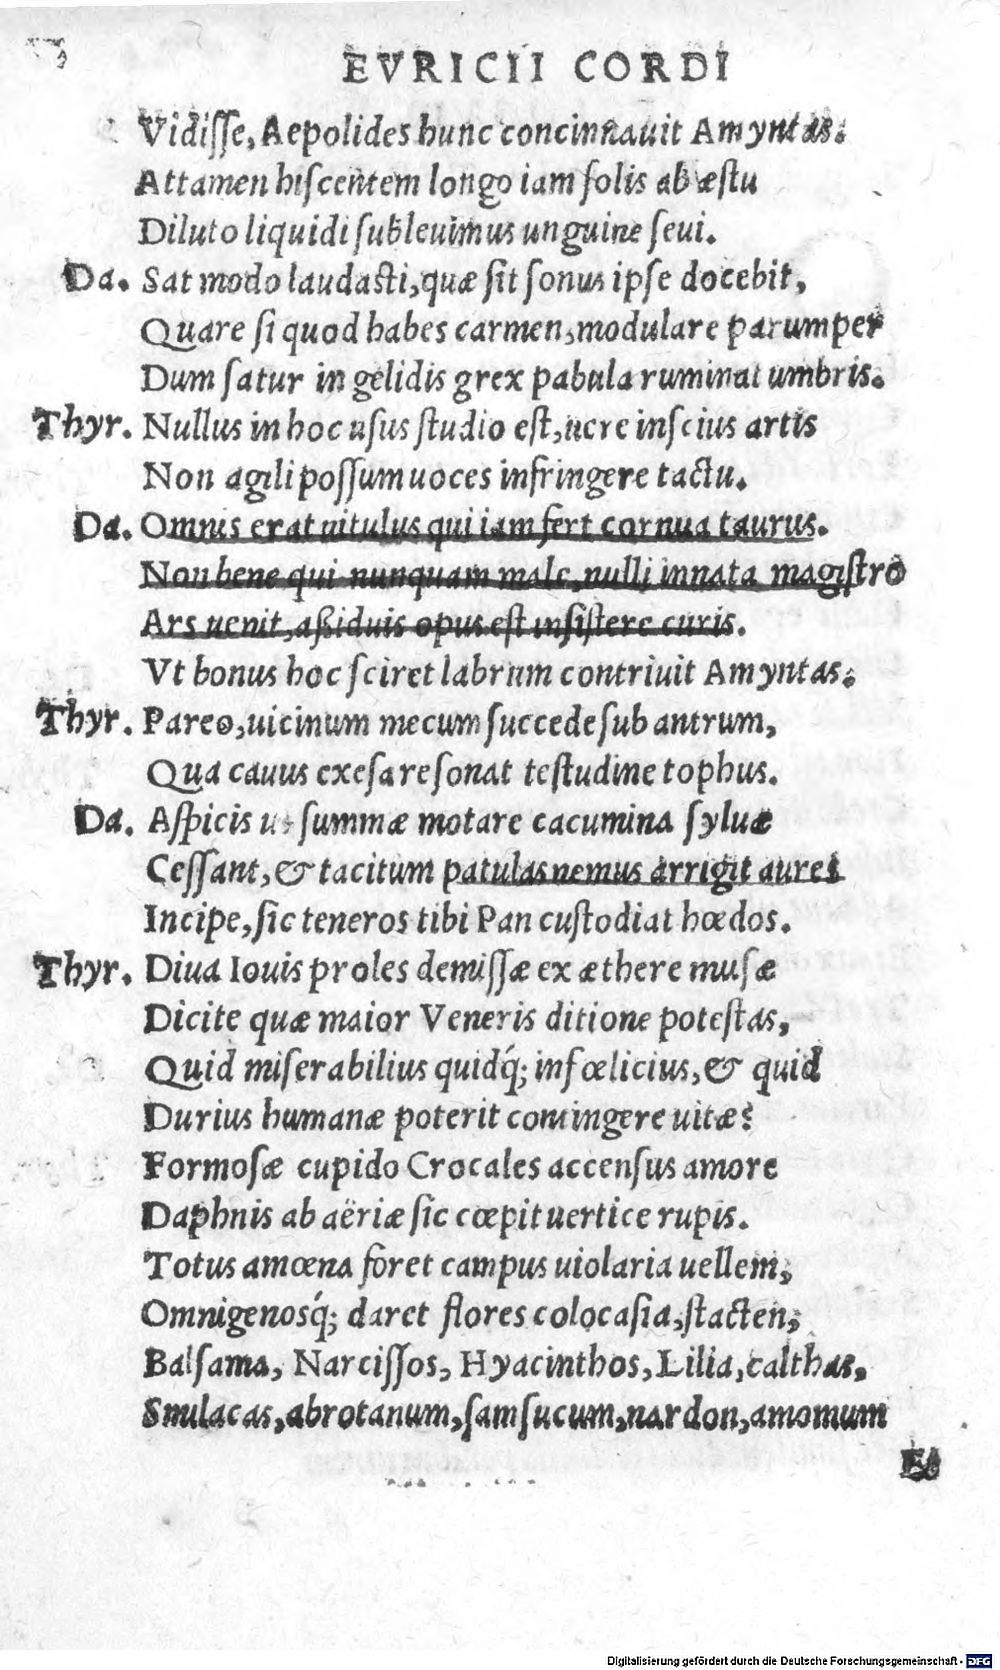 EVRICII CORDI
Vidiſſe, Aepolides hunc concinnauit Amyntas.
Attamen hiſcentem longo iam ſolis ab æſtu
Diluto liquidi ſubleuimus unguine ſeui.
Da. Sat modo laudaſti, quæ ſit ſonus ipſe docebit,
Quare ſi quod habes carmen, modulare parumper
Dum ſatur in gelidis grex pabula ruminat umbris.
Thyr. Nullus in hoc uſus ſtudio eſt, nere inſcius artis
Non agili poſſum uoces infringere tactu.
Da. Omnis erat uitulus qui iam fert cornua taurus.
Non bene qui nunquam male, nulli innata magiſtro
Ars uenit, aßiduis opus eſt inſiſtere curis.
Vt bonus hoc ſciret labrum contriuit Amyntas.
Thyr. Pareo, uicinum mecum ſuccede ſub antrum,
Qua cauus exeſa reſonat teſtudine tophus.
Da. Aſpicis ut ſummæ motare cacumina ſyluæ
Ceſſant, & tacitum patulas nemus arrigit aures
Incipe, ſic teneros tibi Pan cuſtodiat hœdos.
Thyr. Diua Iouis proles demiſſæ ex æthere muſæ
Dicite quæ maior Veneris ditione poteſtas,
Quid miſerabilius quidq́; infœlicius, & quid
Durius humanæ poterit contingere uitæ?
Formoſæ cupido Crocales accenſus amore
Daphnis ab aëriæ ſic cœpit uertice rupis.
Totus amœna foret campus uiolaria uellem,
Omnigenosq́; daret flores colocaſia, ſtacten,
Balſama, Narciſſos, Hyacinthos, Lilia, calthas,
Smilacas, abrotanum, ſamſucum, nardon, amomum
Digitalisierung gefördert durch die Deutsche Forschungsgemeinschaft - DFG